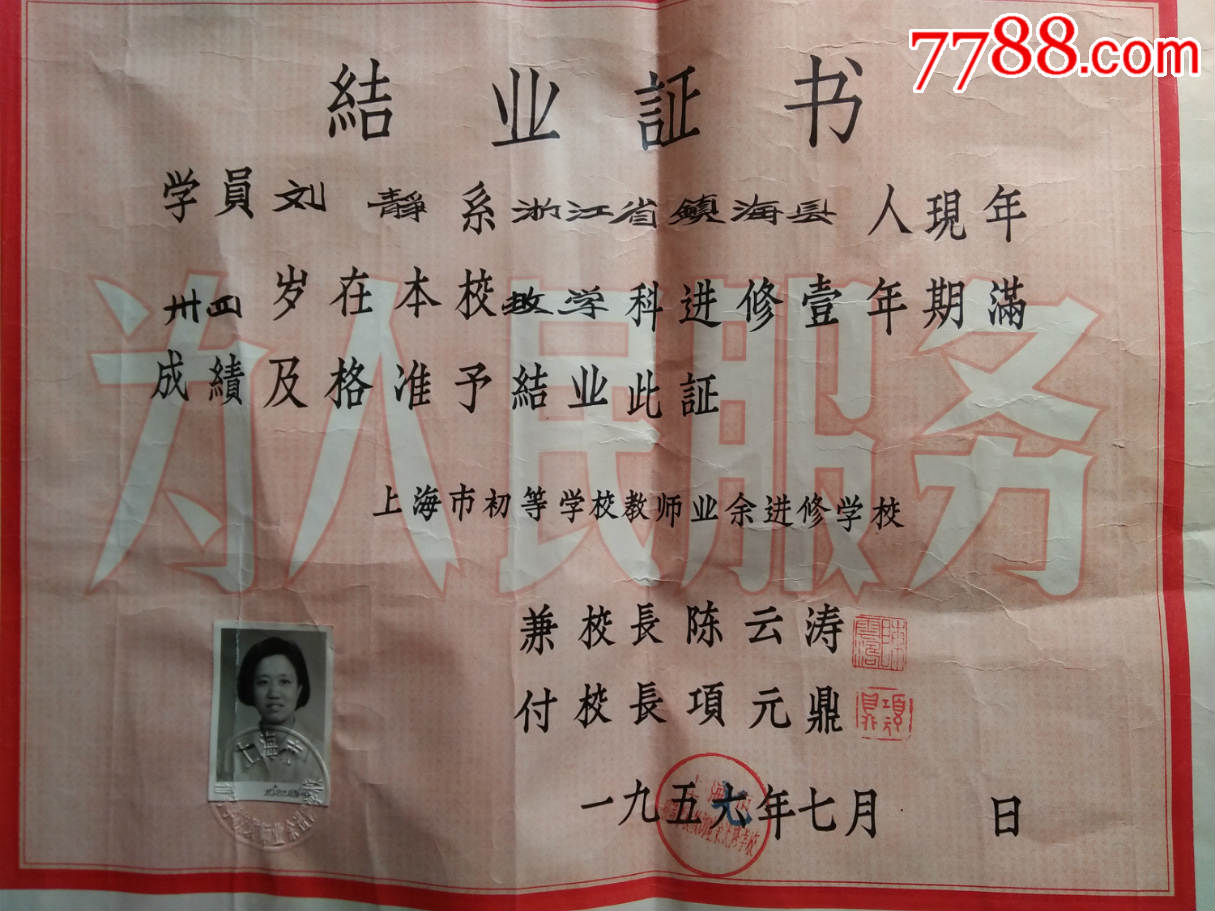 7788.com
結业証书
学員刘靜系浙江省鎮海县人現年
卅四岁在本校教学科进修壹年期滿
成績及格准予結业此証
为人民服务
上海市初等学校教师业余进修学校
兼校長陈云涛
付校長項元鼎
一九五 年七月 日
上海市